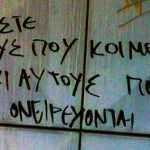 ΣΤΕ
ΥΣ ΠΟΥ ΚΟΙΜ
ΑΥΤΟΥΣ ΠΟ
ΟΝΕΙΡΕΥΟΝΤΑΙ